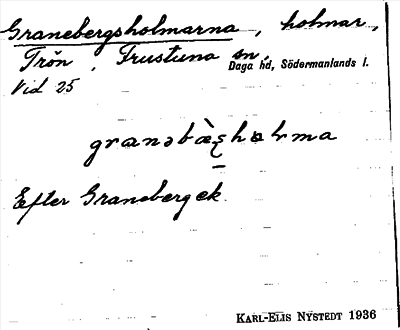 Granebergsholmarna, holmar,
Trön, Frustuna sn,
Daga hd, Södermanlands l.
Vid 25
granəbæ̀ʂhɑɫma
Efter Graneberg ek.
KARL-ELIS NYSTEDT 1936